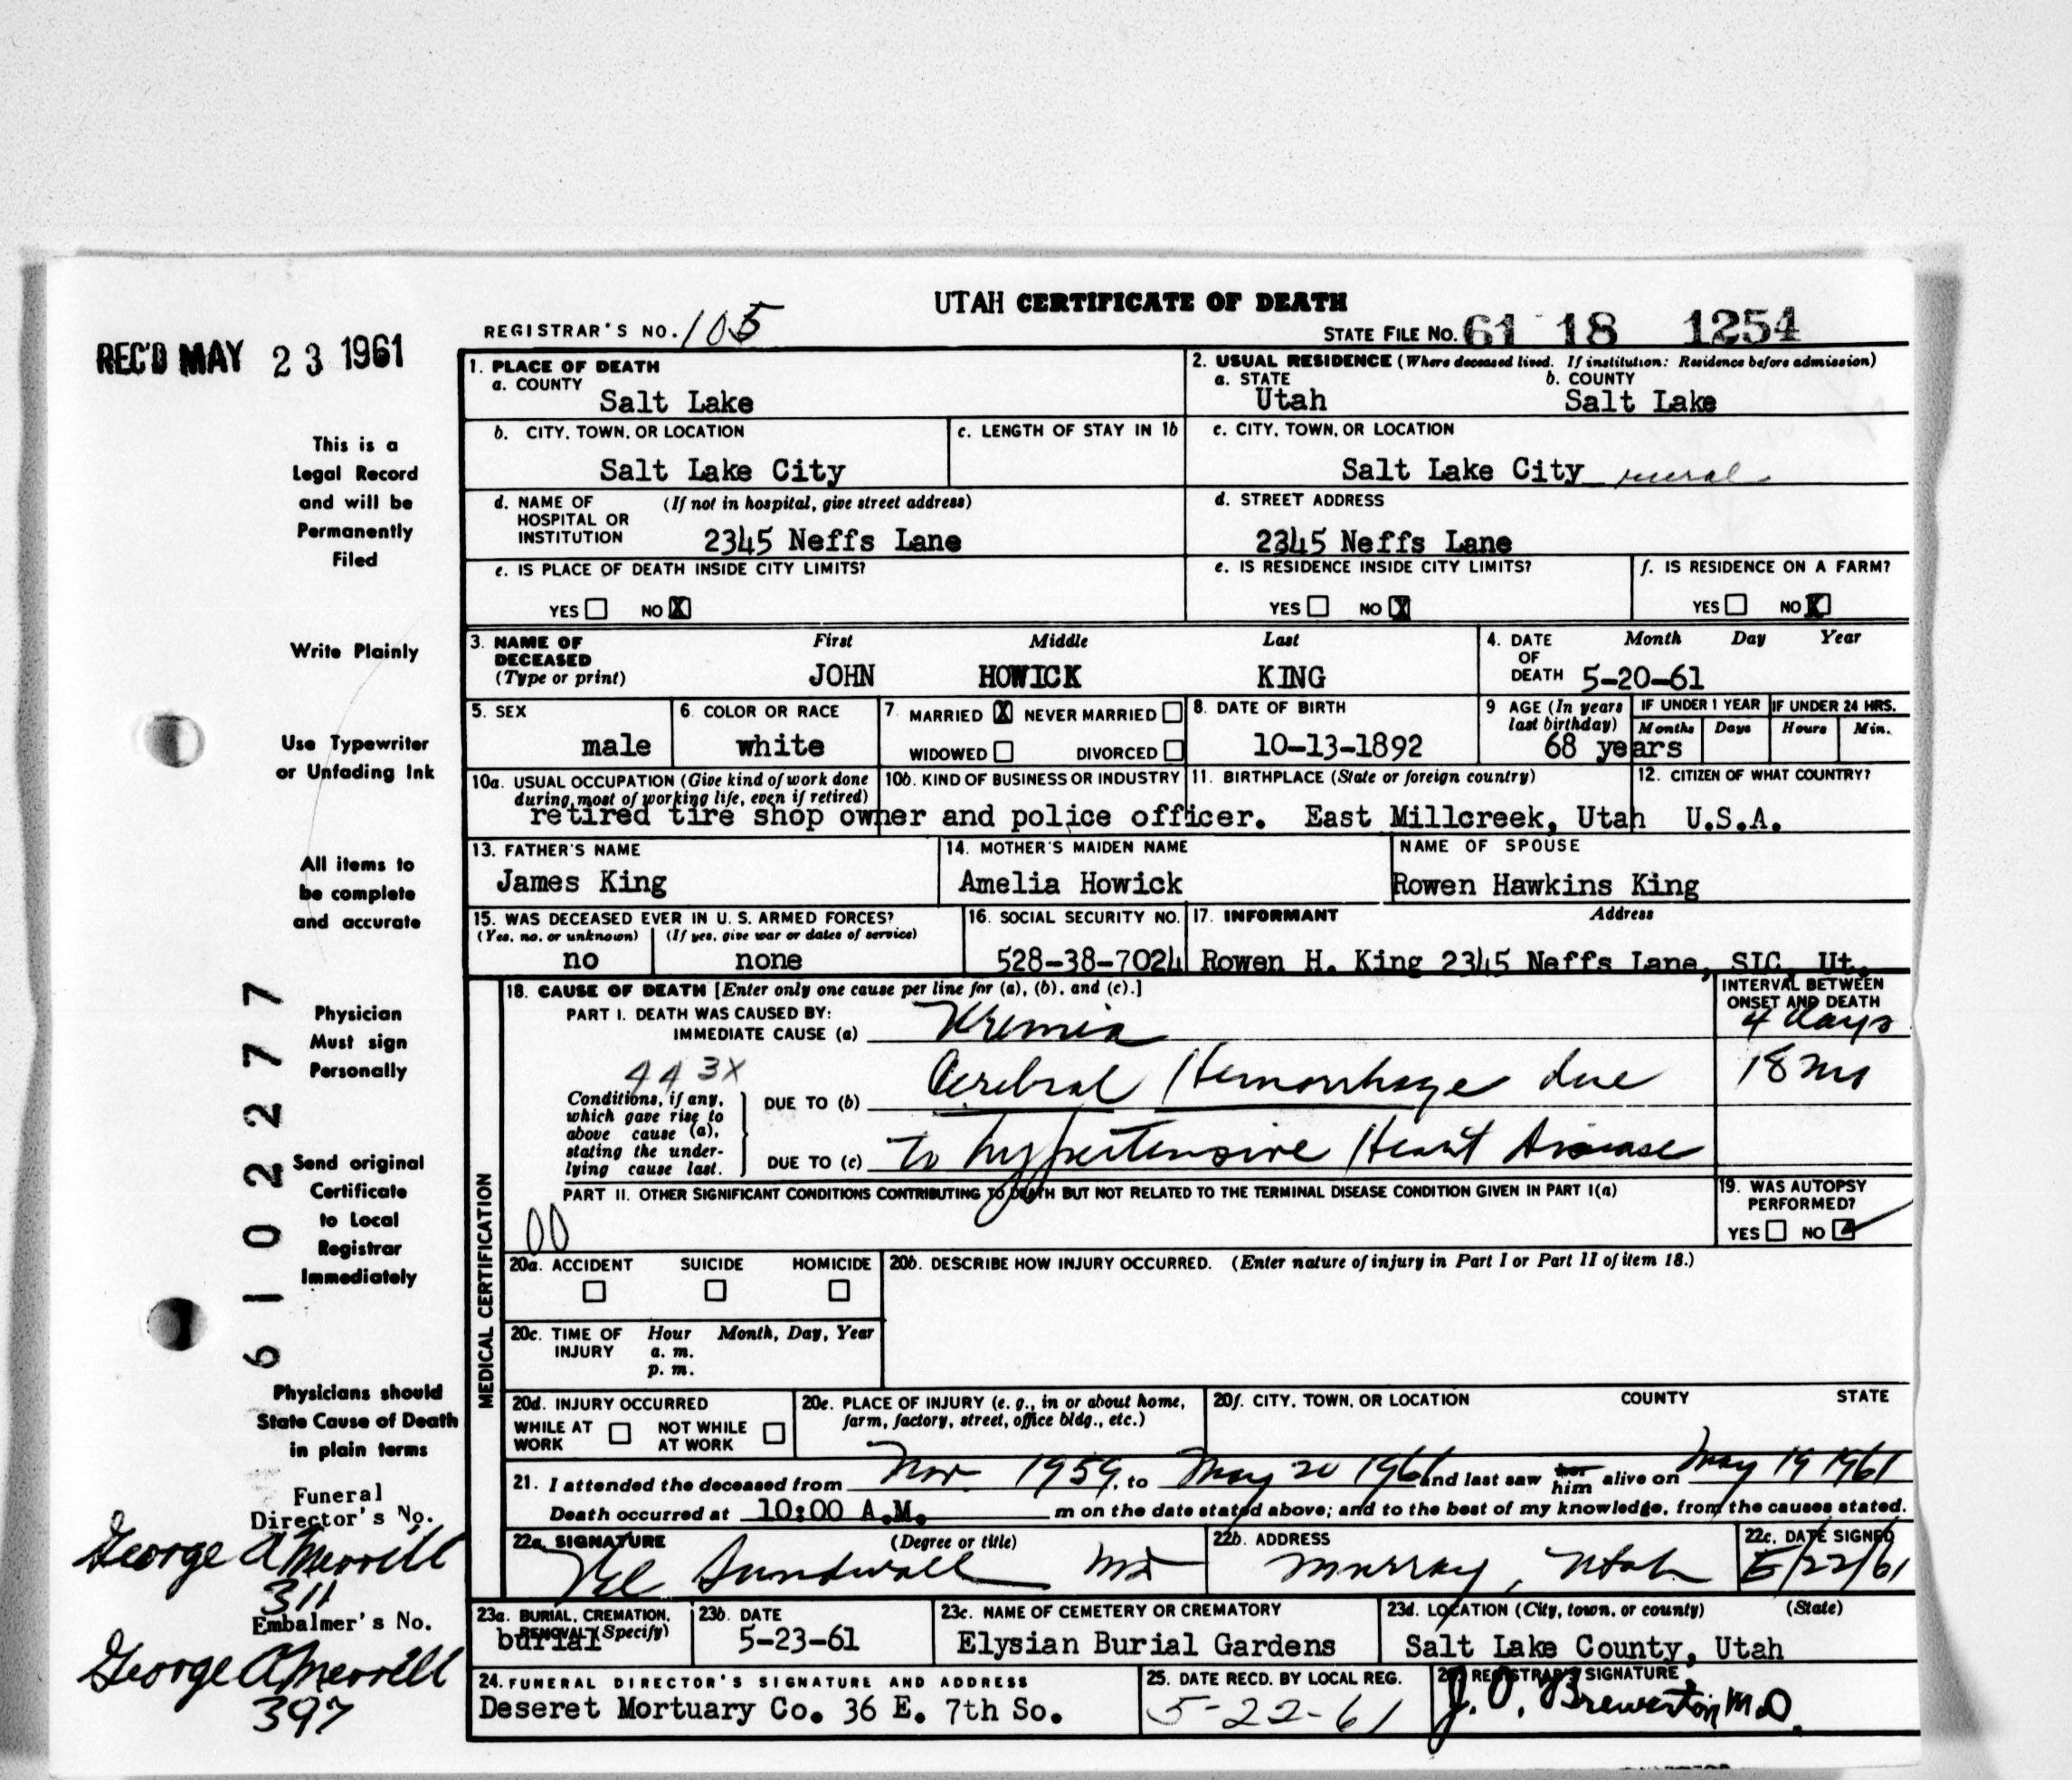 UTAH CERTIFICATE OF DEATH
REGISTRAR'S NO. 105
STATE FILE NO. 61 18 1254
REC'D MAY 23 1961
This is a
Legal Record
and will be
Permanently
Filed
Write Plainly
Use Typewriter
or Unfading Ink
All items to
be complete
and accurate
Physician
Must sign
Personally
Send original
Certificate
to Local
Registrar
Immediately
Physicians should
State Cause of Death
in plain terms
61 02277
Funeral
Director's No.
George A Merrill
311
Embalmer's No.
George A Merrill
397
1. PLACE OF DEATH
a. COUNTY
Salt Lake
2. USUAL RESIDENCE (Where deceased lived. If institution: Residence before admission)
a. STATE b. COUNTY
Utah Salt Lake
b. CITY, TOWN, OR LOCATION
Salt Lake City
c. LENGTH OF STAY IN 1b
c. CITY, TOWN, OR LOCATION
Salt Lake City rural
d. NAME OF (If not in hospital, give street address)
HOSPITAL OR
INSTITUTION 2345 Neffs Lane
d. STREET ADDRESS
2345 Neffs Lane
e. IS PLACE OF DEATH INSIDE CITY LIMITS?
YES NO X
e. IS RESIDENCE INSIDE CITY LIMITS?
YES NO X
f. IS RESIDENCE ON A FARM?
YES NO X
3. NAME OF DECEASED (Type or print)
First Middle Last
JOHN HOWICK KING
4. DATE OF DEATH Month Day Year
5-20-61
5. SEX
male
6. COLOR OR RACE
white
7. MARRIED X NEVER MARRIED
WIDOWED DIVORCED
8. DATE OF BIRTH
10-13-1892
9 AGE (In years last birthday)
68 years
IF UNDER 1 YEAR IF UNDER 24 HRS.
Months Days Hours Min.
10a. USUAL OCCUPATION (Give kind of work done
during most of working life, even if retired)
10b. KIND OF BUSINESS OR INDUSTRY
retired tire shop owner and police officer.
11. BIRTHPLACE (State or foreign country)
East Millcreek, Utah
12. CITIZEN OF WHAT COUNTRY?
U.S.A.
13. FATHER'S NAME
James King
14. MOTHER'S MAIDEN NAME
Amelia Howick
NAME OF SPOUSE
Rowen Hawkins King
15. WAS DECEASED EVER IN U. S. ARMED FORCES?
(Yes, no, or unknown) (If yes, give war or dates of service)
no none
16. SOCIAL SECURITY NO.
528-38-7024
17. INFORMANT Address
Rowen H. King 2345 Neffs Lane, SLC, Ut.
MEDICAL CERTIFICATION
18. CAUSE OF DEATH [Enter only one cause per line for (a), (b), and (c).]
INTERVAL BETWEEN
ONSET AND DEATH
PART I. DEATH WAS CAUSED BY:
IMMEDIATE CAUSE (a) Uremia 4 days
443X
Conditions, if any,
which gave rise to
above cause (a),
stating the under-
lying cause last.
DUE TO (b) Cerebral Hemorrhage due 18 mo
DUE TO (c) to hypertensive Heart Disease
PART II. OTHER SIGNIFICANT CONDITIONS CONTRIBUTING TO DEATH BUT NOT RELATED TO THE TERMINAL DISEASE CONDITION GIVEN IN PART I(a)
00
19. WAS AUTOPSY
PERFORMED?
YES NO
20a. ACCIDENT SUICIDE HOMICIDE
20b. DESCRIBE HOW INJURY OCCURRED. (Enter nature of injury in Part I or Part II of item 18.)
20c. TIME OF INJURY Hour Month, Day, Year
a. m.
p. m.
20d. INJURY OCCURRED
WHILE AT WORK NOT WHILE AT WORK
20e. PLACE OF INJURY (e. g., in or about home,
farm, factory, street, office bldg., etc.)
20f. CITY, TOWN, OR LOCATION COUNTY STATE
21. I attended the deceased from Nov. 1959, to May 20 1961 and last saw her him alive on May 19 1961
Death occurred at 10:00 A.M. m on the date stated above; and to the best of my knowledge, from the causes stated.
22a. SIGNATURE (Degree or title)
Val Sundwall MD
22b. ADDRESS
Murray, Utah
22c. DATE SIGNED
5/22/61
23a. BURIAL, CREMATION,
REMOVAL (Specify)
burial
23b. DATE
5-23-61
23c. NAME OF CEMETERY OR CREMATORY
Elysian Burial Gardens
23d. LOCATION (City, town, or county) (State)
Salt Lake County, Utah
24. FUNERAL DIRECTOR'S SIGNATURE AND ADDRESS
Deseret Mortuary Co. 36 E. 7th So.
25. DATE RECD. BY LOCAL REG.
5-22-61
26. REGISTRAR'S SIGNATURE
J. O. Brewerton M.D.